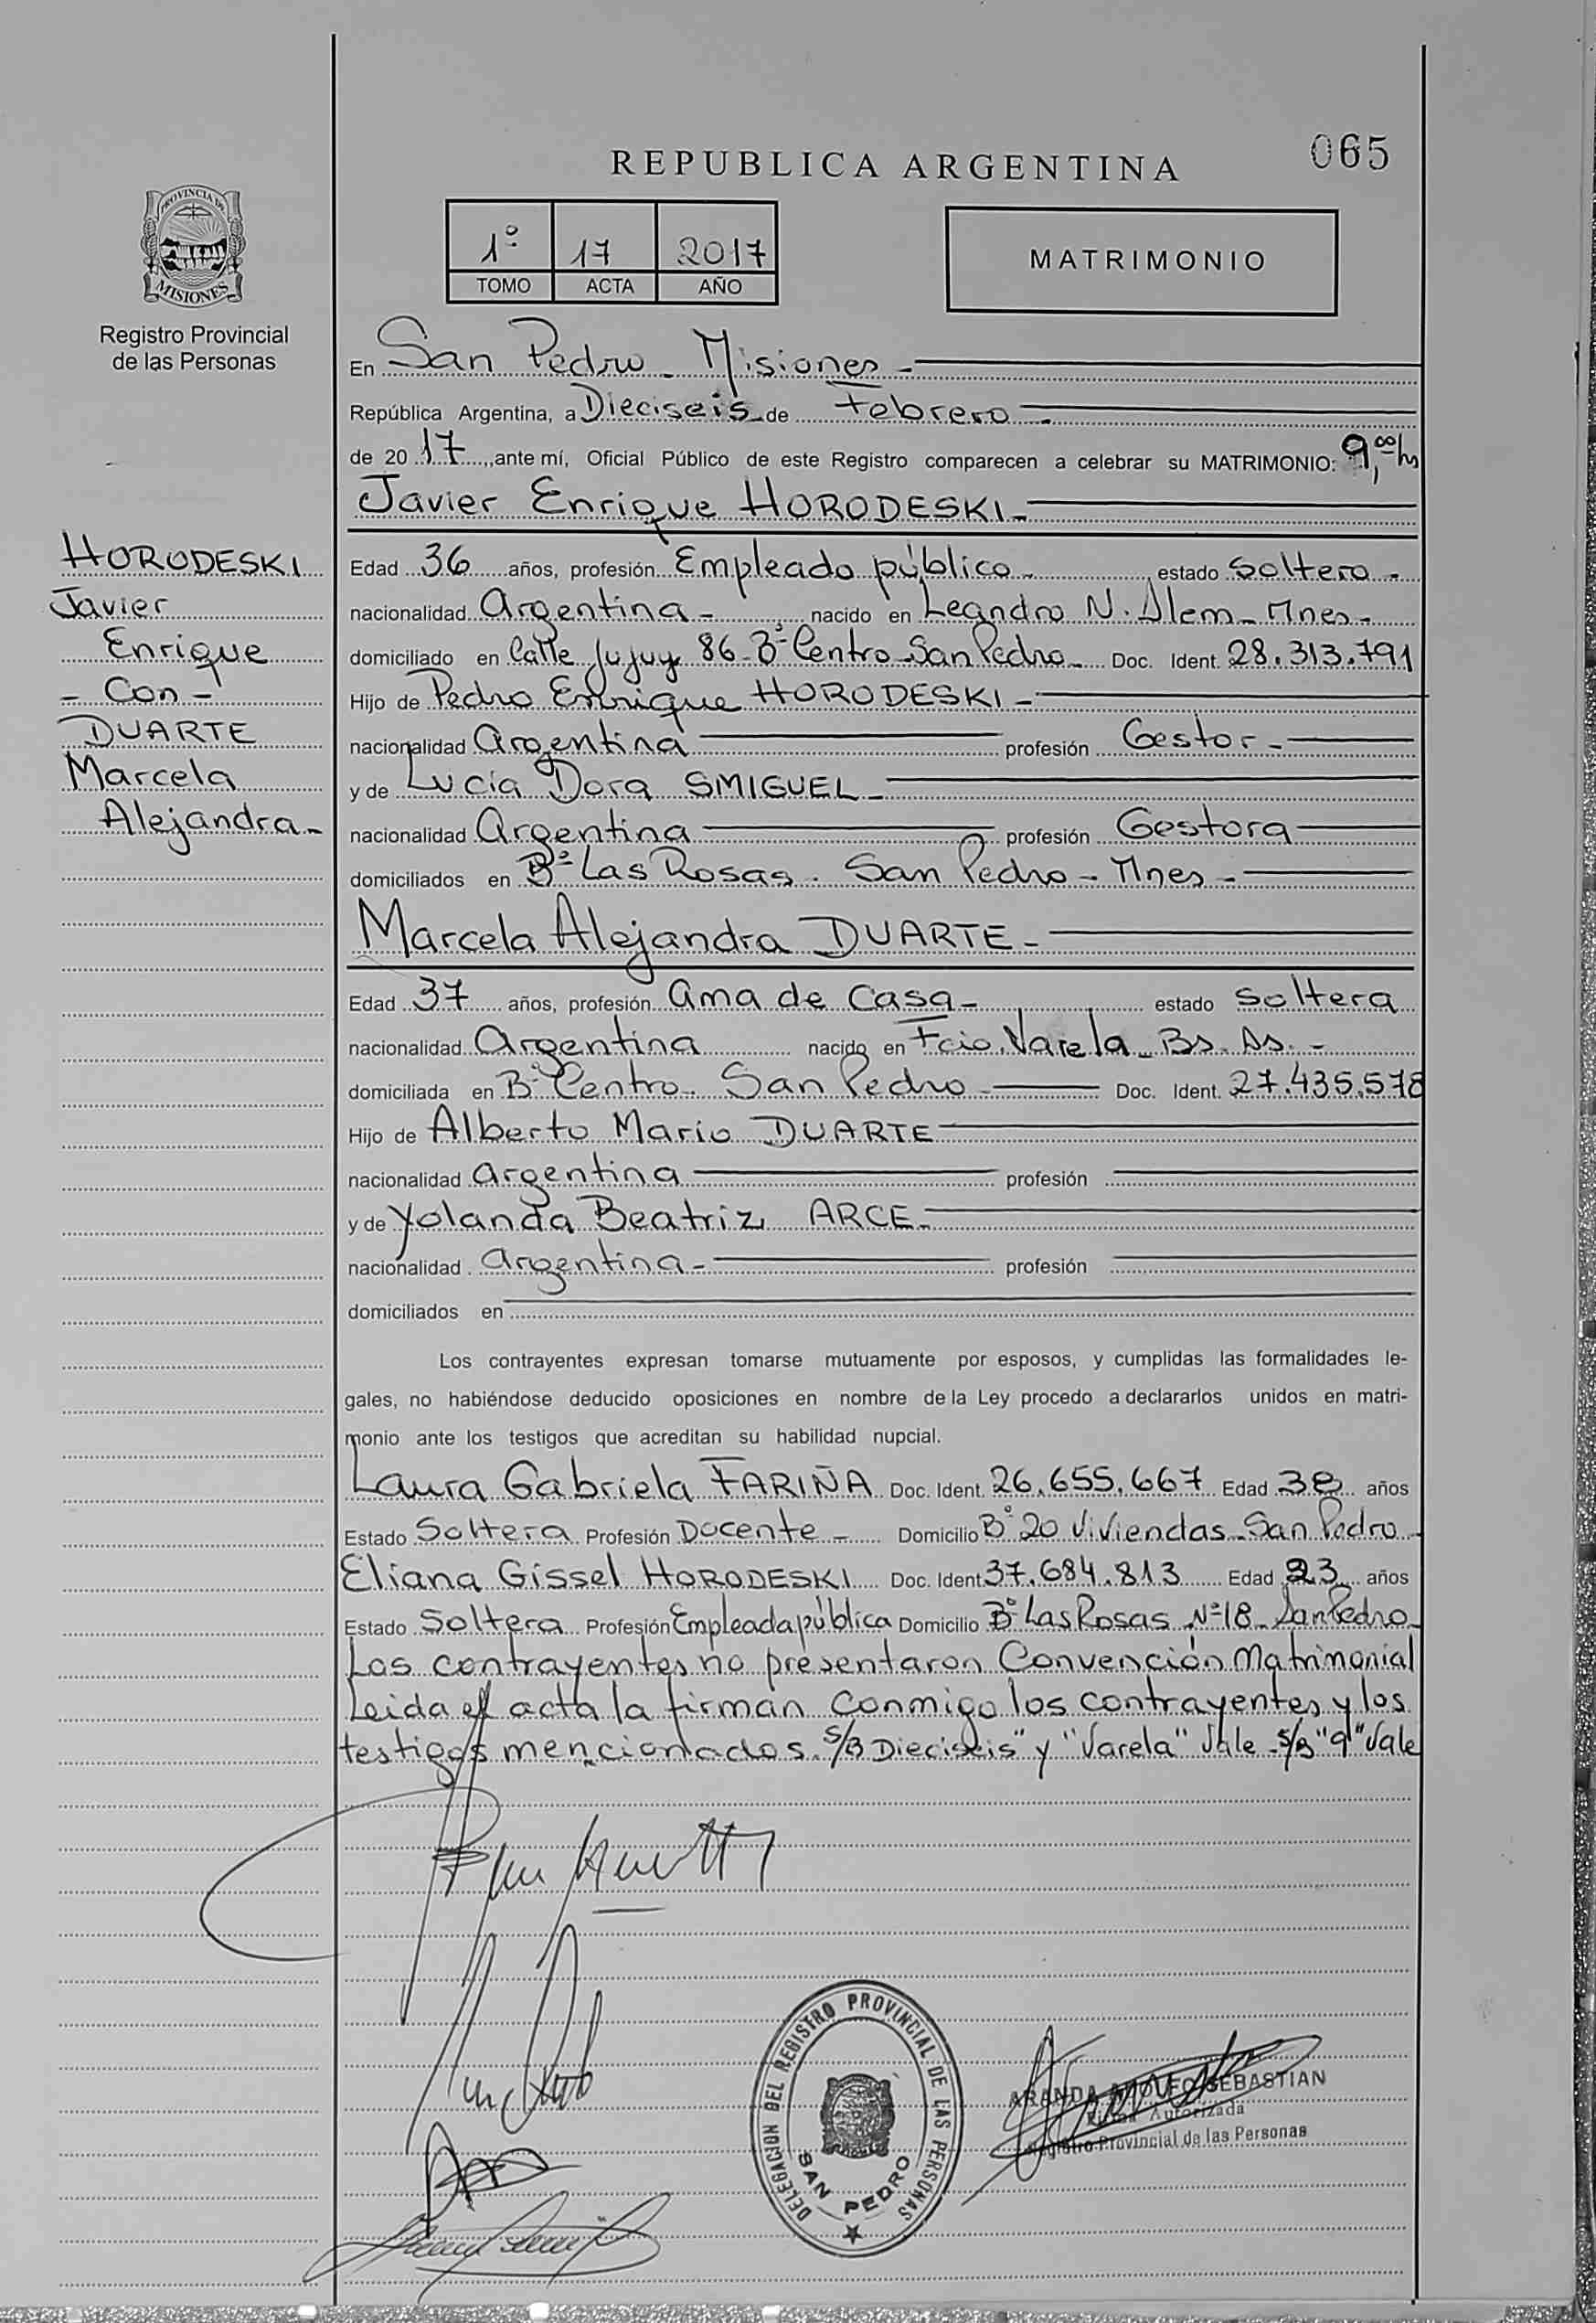 065
REPUBLICA ARGENTINA
PROVINCIA DE
MISIONES
Registro Provincial
de las Personas
1º 17 2017
TOMO ACTA AÑO
MATRIMONIO
En San Pedro - Misiones -
República Argentina, a Dieciseis de Febrero -
de 20 17, ante mí, Oficial Público de este Registro comparecen a celebrar su MATRIMONIO: 9,00 hs
Javier Enrique HORODESKI -
HORODESKI
Javier
Enrique
- Con -
DUARTE
Marcela
Alejandra -
Edad 36 años, profesión Empleado público - estado Soltero -
nacionalidad Argentina - nacido en Leandro N. Alem - Mnes -
domiciliado en Calle Jujuy 86 - Bº Centro - San Pedro - Doc. Ident. 28.313.791
Hijo de Pedro Enrique HORODESKI -
nacionalidad Argentina profesión Gestor -
y de Lucia Dora SMIGUEL -
nacionalidad Argentina profesión Gestora
domiciliados en Bº Las Rosas - San Pedro - Mnes -
Marcela Alejandra DUARTE -
Edad 37 años, profesión Ama de Casa - estado Soltera
nacionalidad Argentina nacido en Fcio. Varela - Bs. As. -
domiciliada en Bº Centro - San Pedro Doc. Ident. 27.435.578
Hijo de Alberto Mario DUARTE
nacionalidad Argentina profesión
y de Yolanda Beatriz ARCE -
nacionalidad Argentina - profesión
domiciliados en
Los contrayentes expresan tomarse mutuamente por esposos, y cumplidas las formalidades le-
gales, no habiéndose deducido oposiciones en nombre de la Ley procedo a declararlos unidos en matri-
monio ante los testigos que acreditan su habilidad nupcial.
Laura Gabriela FARIÑA Doc. Ident. 26.655.667 Edad 38 años
Estado Soltera Profesión Docente - Domicilio Bº 20 Viviendas - San Pedro
Eliana Gissel HORODESKI Doc. Ident. 37.684.813 Edad 23 años
Estado Soltera Profesión Empleada pública Domicilio Bº Las Rosas Nº 18 - San Pedro
Los contrayentes no presentaron Convención Matrimonial
Leida el acta la firman conmigo los contrayentes y los
testigos mencionados. S/B Dieciseis" y "Varela" Vale - S/B "9" Vale
DELEGACION DEL REGISTRO PROVINCIAL DE LAS PERSONAS
SAN PEDRO
ARANDA SEBASTIAN
Autorizada
Registro Provincial de las Personas